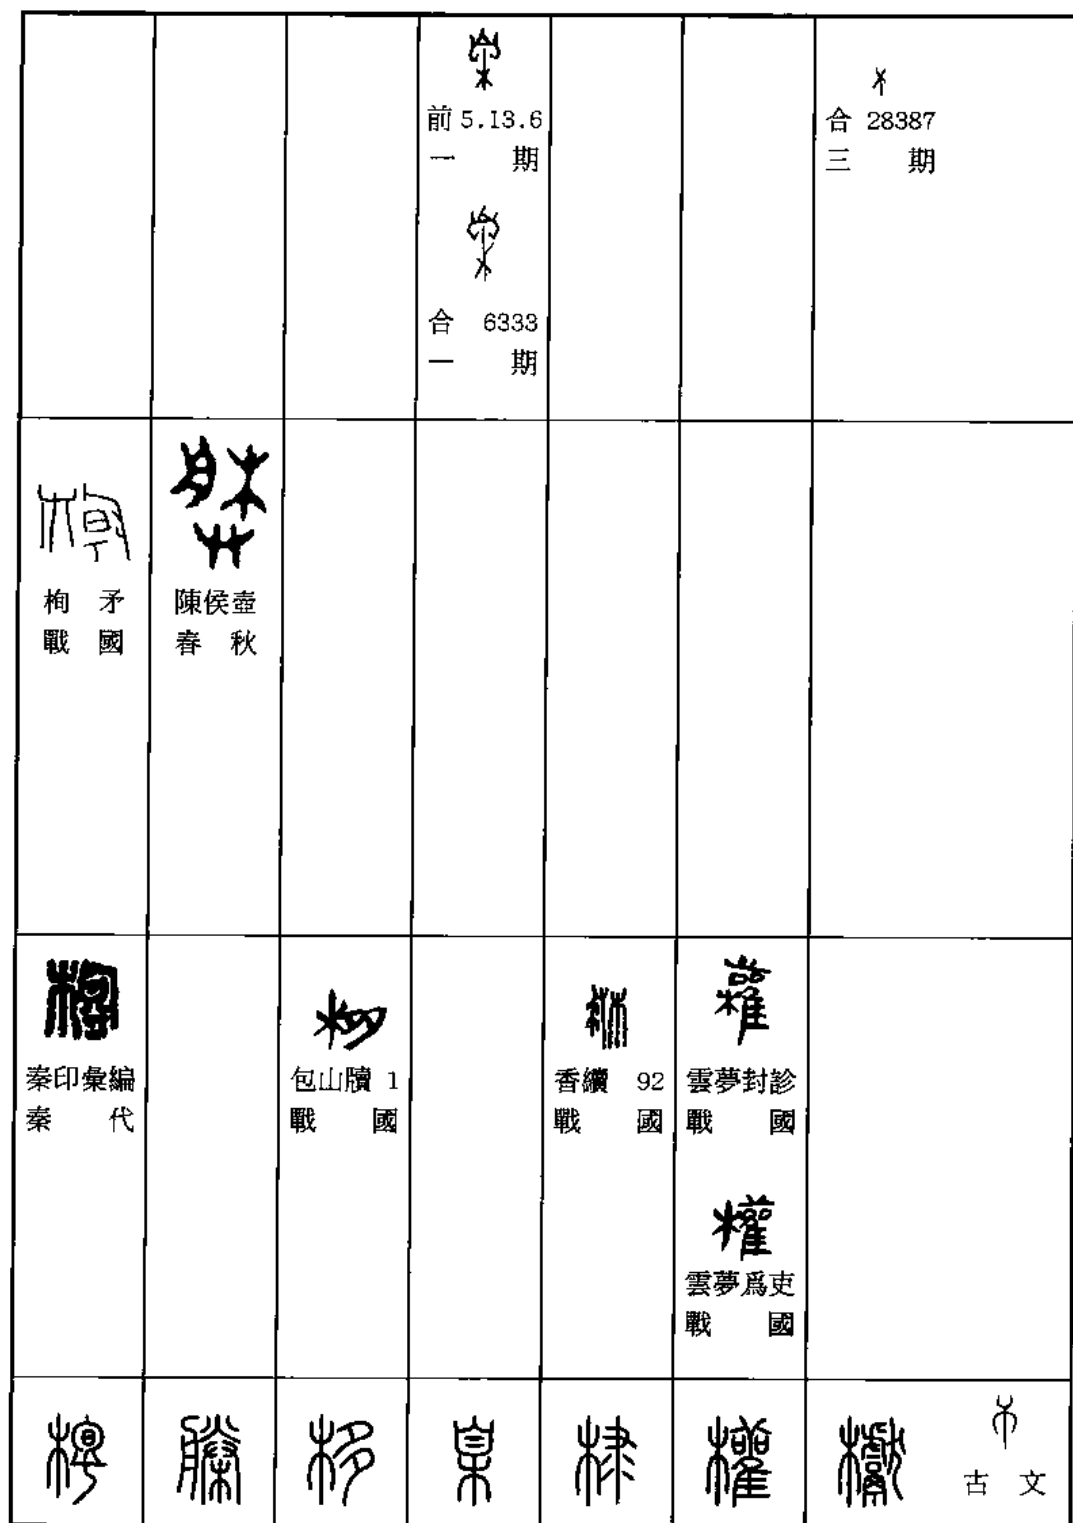 前 5.13.6
一 期
合 6333
一 期
合 28387
三 期
栒 矛
戰 國
陳侯壺
春 秋
秦印彙編
秦 代
包山牘 1
戰 國
香續 92
戰 國
雲夢封診
戰 國
雲夢爲吏
戰 國
栒
榺
栘
臬
棣
權
古 文